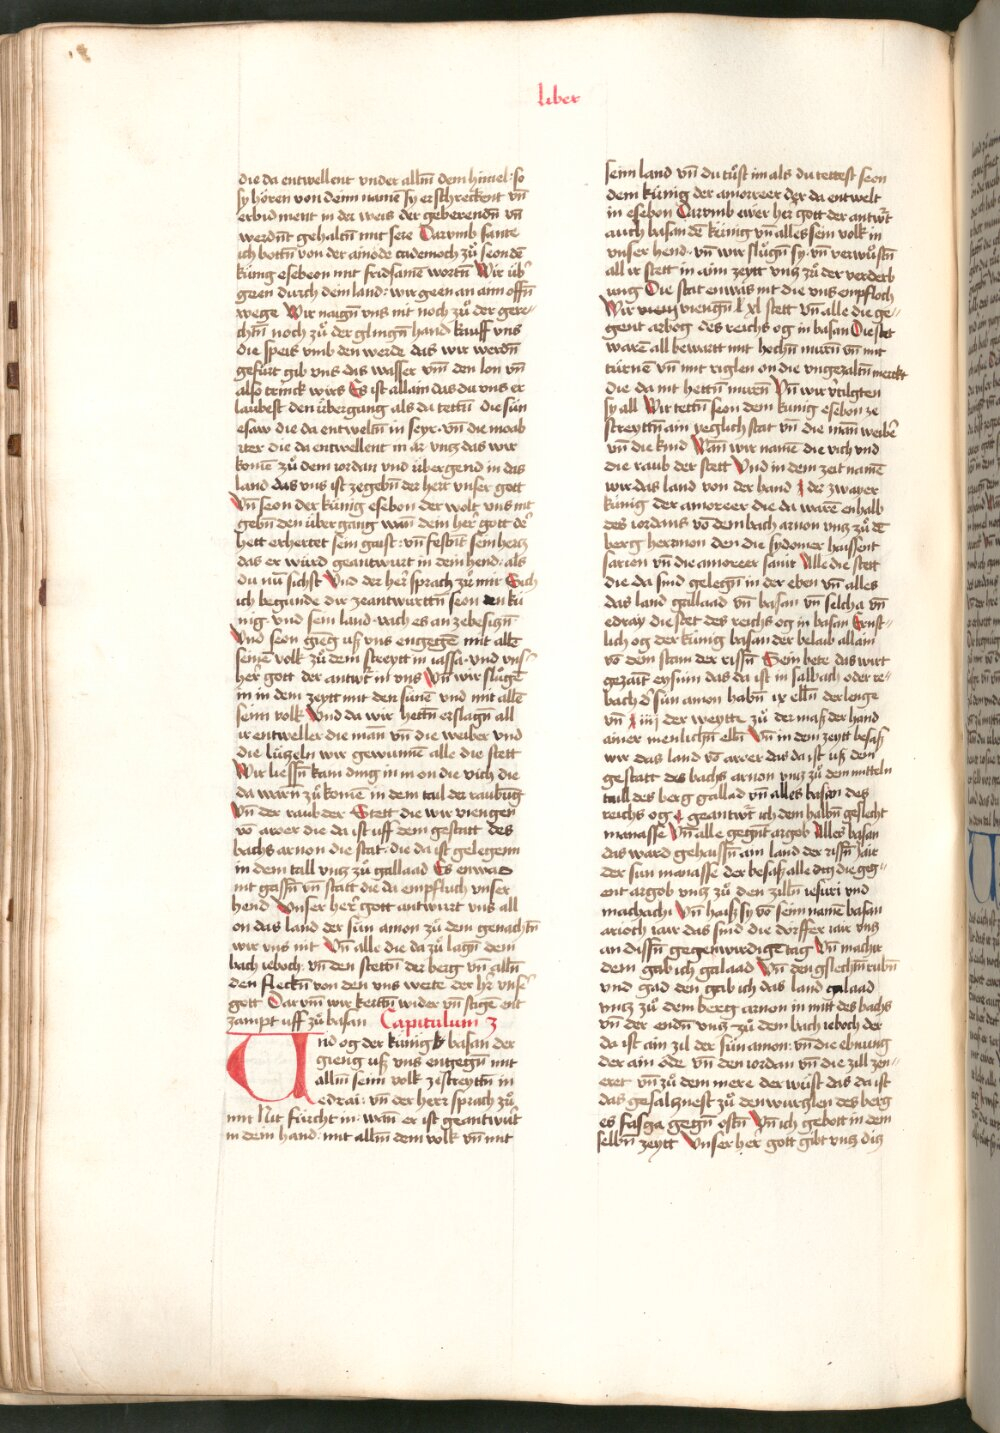 liber
die da entwellent vnder allm̄ dem himel · so
sy hören von deim̄ namē sy erschreckent vn̄
erbidment in der weis der geberendn̄ vn̄
werdn̄t gehaltn̄ mit sere Darvmb sante
ich bottn̄ von der ainöde cademoch zuͦ seon dē
künig esebeon mit fridsamē wortn̄ Wir übͬ
geen durch dein land : wir geen an ann offn̄
wege Wir naign̄ vns nit noch zuͦ der gere=
chtn̄ noch zuͦ der glingn̄ hand kauff vns
die speis vmb den werde das wir werdn̄
gefürt gib vns das wasser vm̄ den lon vn̄
also trinck wirs Es ist allain das du vns er
laubest den übergang als da tettn̄ die sün
esaw die da entweln̄ in seyr · vn̄ die moab
iter die da entwellent in ar vntz das wir
komē zuͦ dem iordan vnd übergend in das
land das vns ist zegebn̄ der herr vnser gott
Vn̄ seon der künig esebon der wolt vns nit
gebn̄ den übergang wan̄ dein herͬ gott dͤ
hett erhertet sein gaist : vn̄ festnt̄ sein hertz
das er würd geantwurt in dein hend : als
du nū sichst Vnd der herͬ sprach zuͦ mir Sich
ich begunde dir zeantwurttn̄ seon den kü
nig · vnd sein land · vach es an zebesitzn̄
Vnd seon gieg usz vns engegē mit allē
seinē volk zuͦ dem streytt in iassa · vnd vnsͬ
herͬ gott der antwrͭ in vns Vn̄ wir sluͦgē
in in dem zeytt mit den sünē vnd mit allē
seim volk Vnd da wir hettn̄ erslagn̄ all
ir entweller die man̄ vn̄ die weiber vnd
die lützeln wir gewunnē alle die stett
Wir liessn̄ kain ding in in on die vich die
da warn̄ zuͦ komē in dem tail der raubūg
Vn̄ der raub der Stett die wir viengen
vō aroer die da ist uff dem gestatt des
bachs arnon die stat · die da ist gelegenn
in dem tall vntz zuͦ gallaad Es enwas
nit gassn̄ vn̄ statt die da empfluch vnser
hend Vnser herͬ gott antwurt vns all
on das land der sün amon zuͦ dem genachtn̄
wir vns nit Vn̄ alle die da zuͦ lagn̄ dem
bach ieboch · vn̄ den stettn̄ der berg vn̄ alln̄
den fleckn̄ von den vns werte der hͬ vnsͬ
gott Darvm̄ wir kertn̄ wider vn̄ stigē ent
zampt uff zuͦ basan Capitulum 3
Und og der künig basan der
gieng usz vns entgegn̄ mit
allm̄ seim volk zestreytn̄ in
edrai : vn̄ der herr sprach zuͦ
mir Nit fürcht in · wan̄ er ist geantwurͭ
in dein hand : mit allm̄ dem volk vn̄ mit
seim land vn̄ du tuͦst im als du tettest seon
dem künig der amorreer der da entwelt
in esebon Darvmb ewer her gott der antwrͭ
auch basan dē künig vn̄ alles sein volk in
vnser hend · vn̄ wir sluͦgn̄ sy · vn̄ verwuͦstn̄
all ir stett in aim zeytt vntz zuͦ der verderb
ung Die stat enwas nit die vns empfloch
Wir viengn̄ lx stett vn̄ alle die ge=
gent arbog des reichs og in basan Die stet
warē all bewartt mit hochn̄ murn̄ vn̄ mit
türnen vn̄ mit riglen on die vngezaltn̄ merckt
die da nit hettn̄ murēn Vn̄ wir vͬtilgten
sy all Wir tettn̄ seon dem künig esebon ze
streyttn̄ ain yeglich stat vn̄ die man̄ weibͤ
vn̄ die kind Wan̄ wir namē die vich vnd
die raub der stett Vnd in dem zeit namē
wir das land von der hand der zwayer
künig der amoreer die da warē enhalb
des iordans vō dem bach arnon vntz zuͦ dē
berg hermon den die sydomer haissent
sarion vn̄ die amoreer sanir Alle die stett
die da sind gelegn̄ in der eben vn̄ alles
das land gallaad vn̄ basan vn̄ selcha vn̄
edray die stet des reichs og in basan Ernst=
lich og der künig basan der belaib allain
vō dem stam der rissn̄ Sein bete das wirt
gezaigt eysnin das da ist in salbach oder re=
bach dͬ sün amon habn̄ ix elln̄ der lenge
vn̄ iiij der weytte zuͦ der masz der hand
ainer menlichn̄ elln̄ Vn̄ in dem zeytt besasz
wir das land vō aroer das da ist usz dem
gestatt des bachs arnon vntz zuͦ dem mitteln
taill des berg gallad vn̄ alles basan des
reichs og geantwrͭ ich dem halbn̄ geslecht
manasse Vn̄ alle gegn̄t argob Alles basan
das ward gehaissn̄ ain land der rissn̄ iair
der sun manasse der besasz alle die geg=
ent argob vntz zuͦ den zilln̄ iesuri vnd
machachi Vn̄ haisz sy vō seim namē basan
arioch iair das sind die dörffer iair vns
an dissn̄ gegenwirdigē tag Vn̄ machir
dem gab ich galaad Vn̄ den gslechtn̄ rubn̄
vnd gad den gab ich das land galaad
vntz zuͦ dem berg arnon in mitt des bachs
vn̄ der endn̄ vntz zuͦ dem bach ieboch der
da ist ain zil der sün amon : vn̄ die ebnung
der ain öde vn̄ den iordan vn̄ die zill zen=
eret vn̄ zuͦ dem mere der wüst das da ist
das gesaltznest zuͦ den wurtzlen des berg
es fasga gegn̄ ostn̄ Vn̄ ich gebott in dem
selbn̄ zeytt Vnser her gott gibt vntz dis